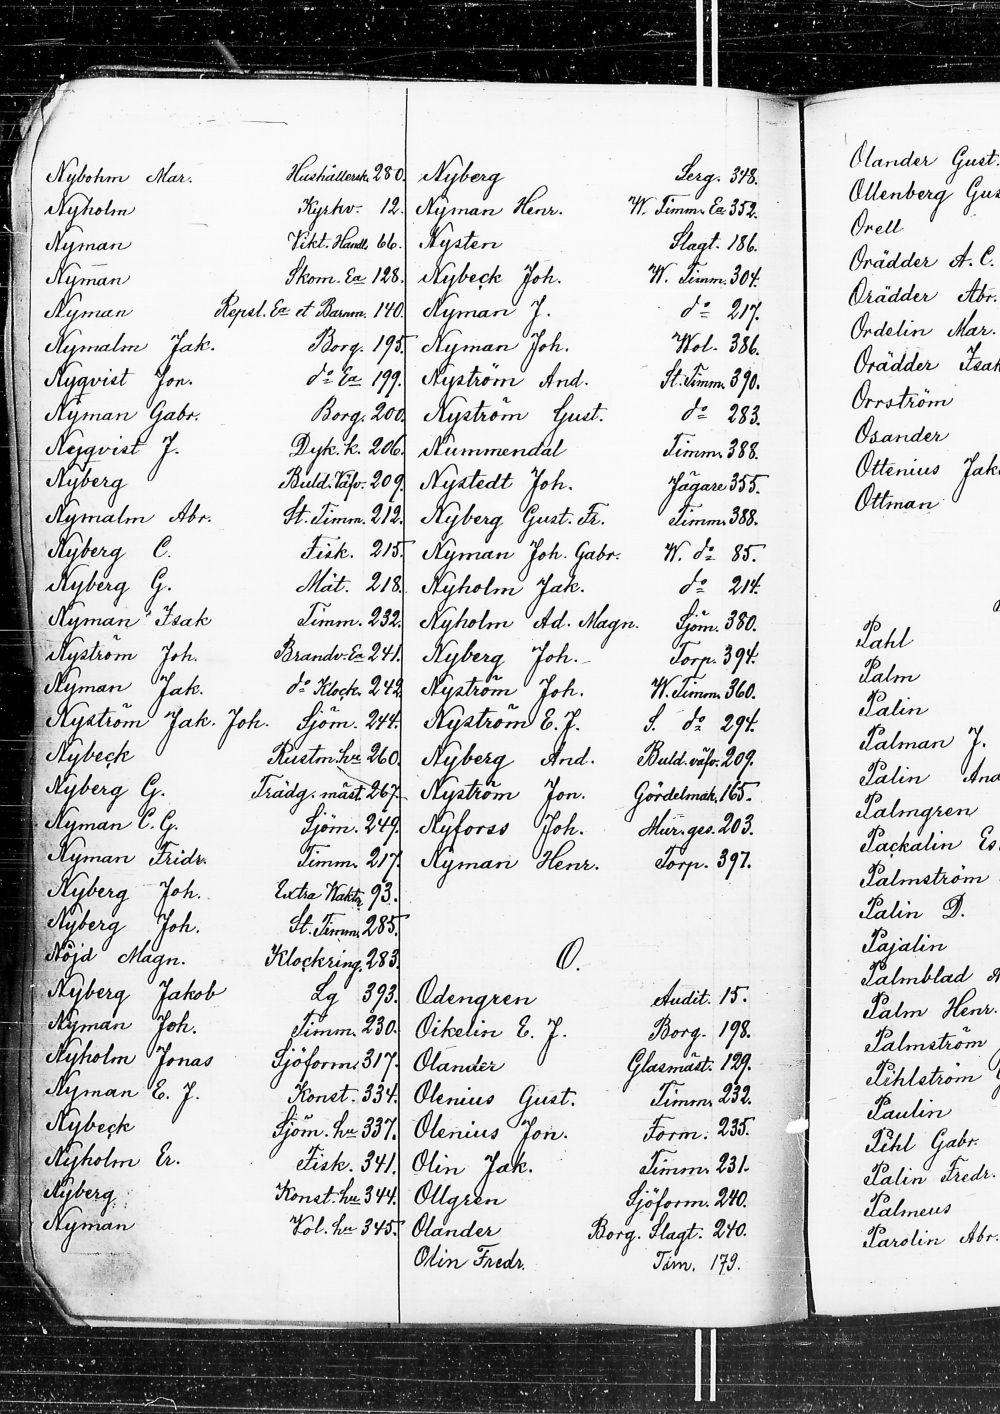 Nybohm Mar. Hushållersk. 280.
Nyholm Kyrkv. 12.
Nyman Vikt. Handl. 66.
Nyman Skom. Ea 128.
Nyman Repsl. Ea et Barnm. 140.
Nymalm Jak. Borg. 195.
Nyqvist Jon. do Ea 199.
Nyman Gabr. Borg. 200.
Nyqvist J. Dyk. k. 206.
Nyberg Buld. Väfv. 209.
Nymalm Abr. St. Timm. 212.
Nyberg C. Fisk. 215.
Nyberg G. Mät. 218.
Nyman Isak Timm. 232.
Nyström Joh. Brandv. Ea 241.
Nyman Jak. do Klock. 242
Nyström Jak. Joh. Sjöm. 244.
Nybeck Rustm. hu 260.
Nyberg G. Trädg. mäst. 267.
Nyman C. G. Sjöm. 249.
Nyman Fridr. Timm. 217.
Nyberg Joh. Extra Waktr 93.
Nyberg Joh. St. Timm. 285.
Nöjd Magn. Klockring. 283.
Nyberg Jakob Lg 393.
Nyman Joh. Timm. 230.
Nyholm Jonas Sjöform. 317.
Nyman E. J. Konst. 334.
Nybeck Sjöm. hu 337.
Nyholm Er. Fisk. 341.
Nyberg Konst. hu 344.
Nyman Vol. hu 345.
Nyberg Serg. 348.
Nyman Henr. W. Timm. Ea 352.
Nysten Slagt. 186.
Nybeck Joh. W. Timm. 304.
Nyman J. do 217.
Nyman Joh. Wol. 386.
Nyström And. St. Timm. 390.
Nyström Gust. do 283.
Nummendal Timm. 388.
Nystedt Joh. Jägare 355.
Nyberg Gust. Fr. Timm. 388.
Nyman Joh. Gabr. W. do 85.
Nyholm Jak. do 214.
Nyholm Ad. Magn. Sjöm. 380.
Nyberg Joh. Torp. 394.
Nyström Joh. W. Timm. 360.
Nyström E. J. S. do 294.
Nyberg And. Buld. väfv. 209.
Nyström Jon. Gördelmak. 165.
Nyforss Joh. Mur. ges. 203.
Nyman Henr. Torp. 397.
O.
Odengren Audit. 15.
Oikelin E. J. Borg. 198.
Olander Glasmäst. 129.
Olenius Gust. Timm. 232.
Olenius Jon. Form. 235.
Olin Jak. Timm. 231.
Ollgren Sjöform. 240.
Olander Borg. Slagt. 240.
Olin Fredr. Tim. 179.
Olander Gust.
Ollenberg Gus
Orell
Orädder A. C.
Orädder Abr.
Ordelin Mar.
Orädder Isak
Orrström
Osander
Ottenius Jak
Ottman
Pahl
Palm
Palin
Palman J.
Palin And
Palmgren
Packalin Es
Palmström
Palin D.
Pajalin
Palmblad
Palm Henr.
Palmström
Pihlström
Paulin
Pihl Gabr.
Palin Fredr.
Palmeus
Parolin Abr.